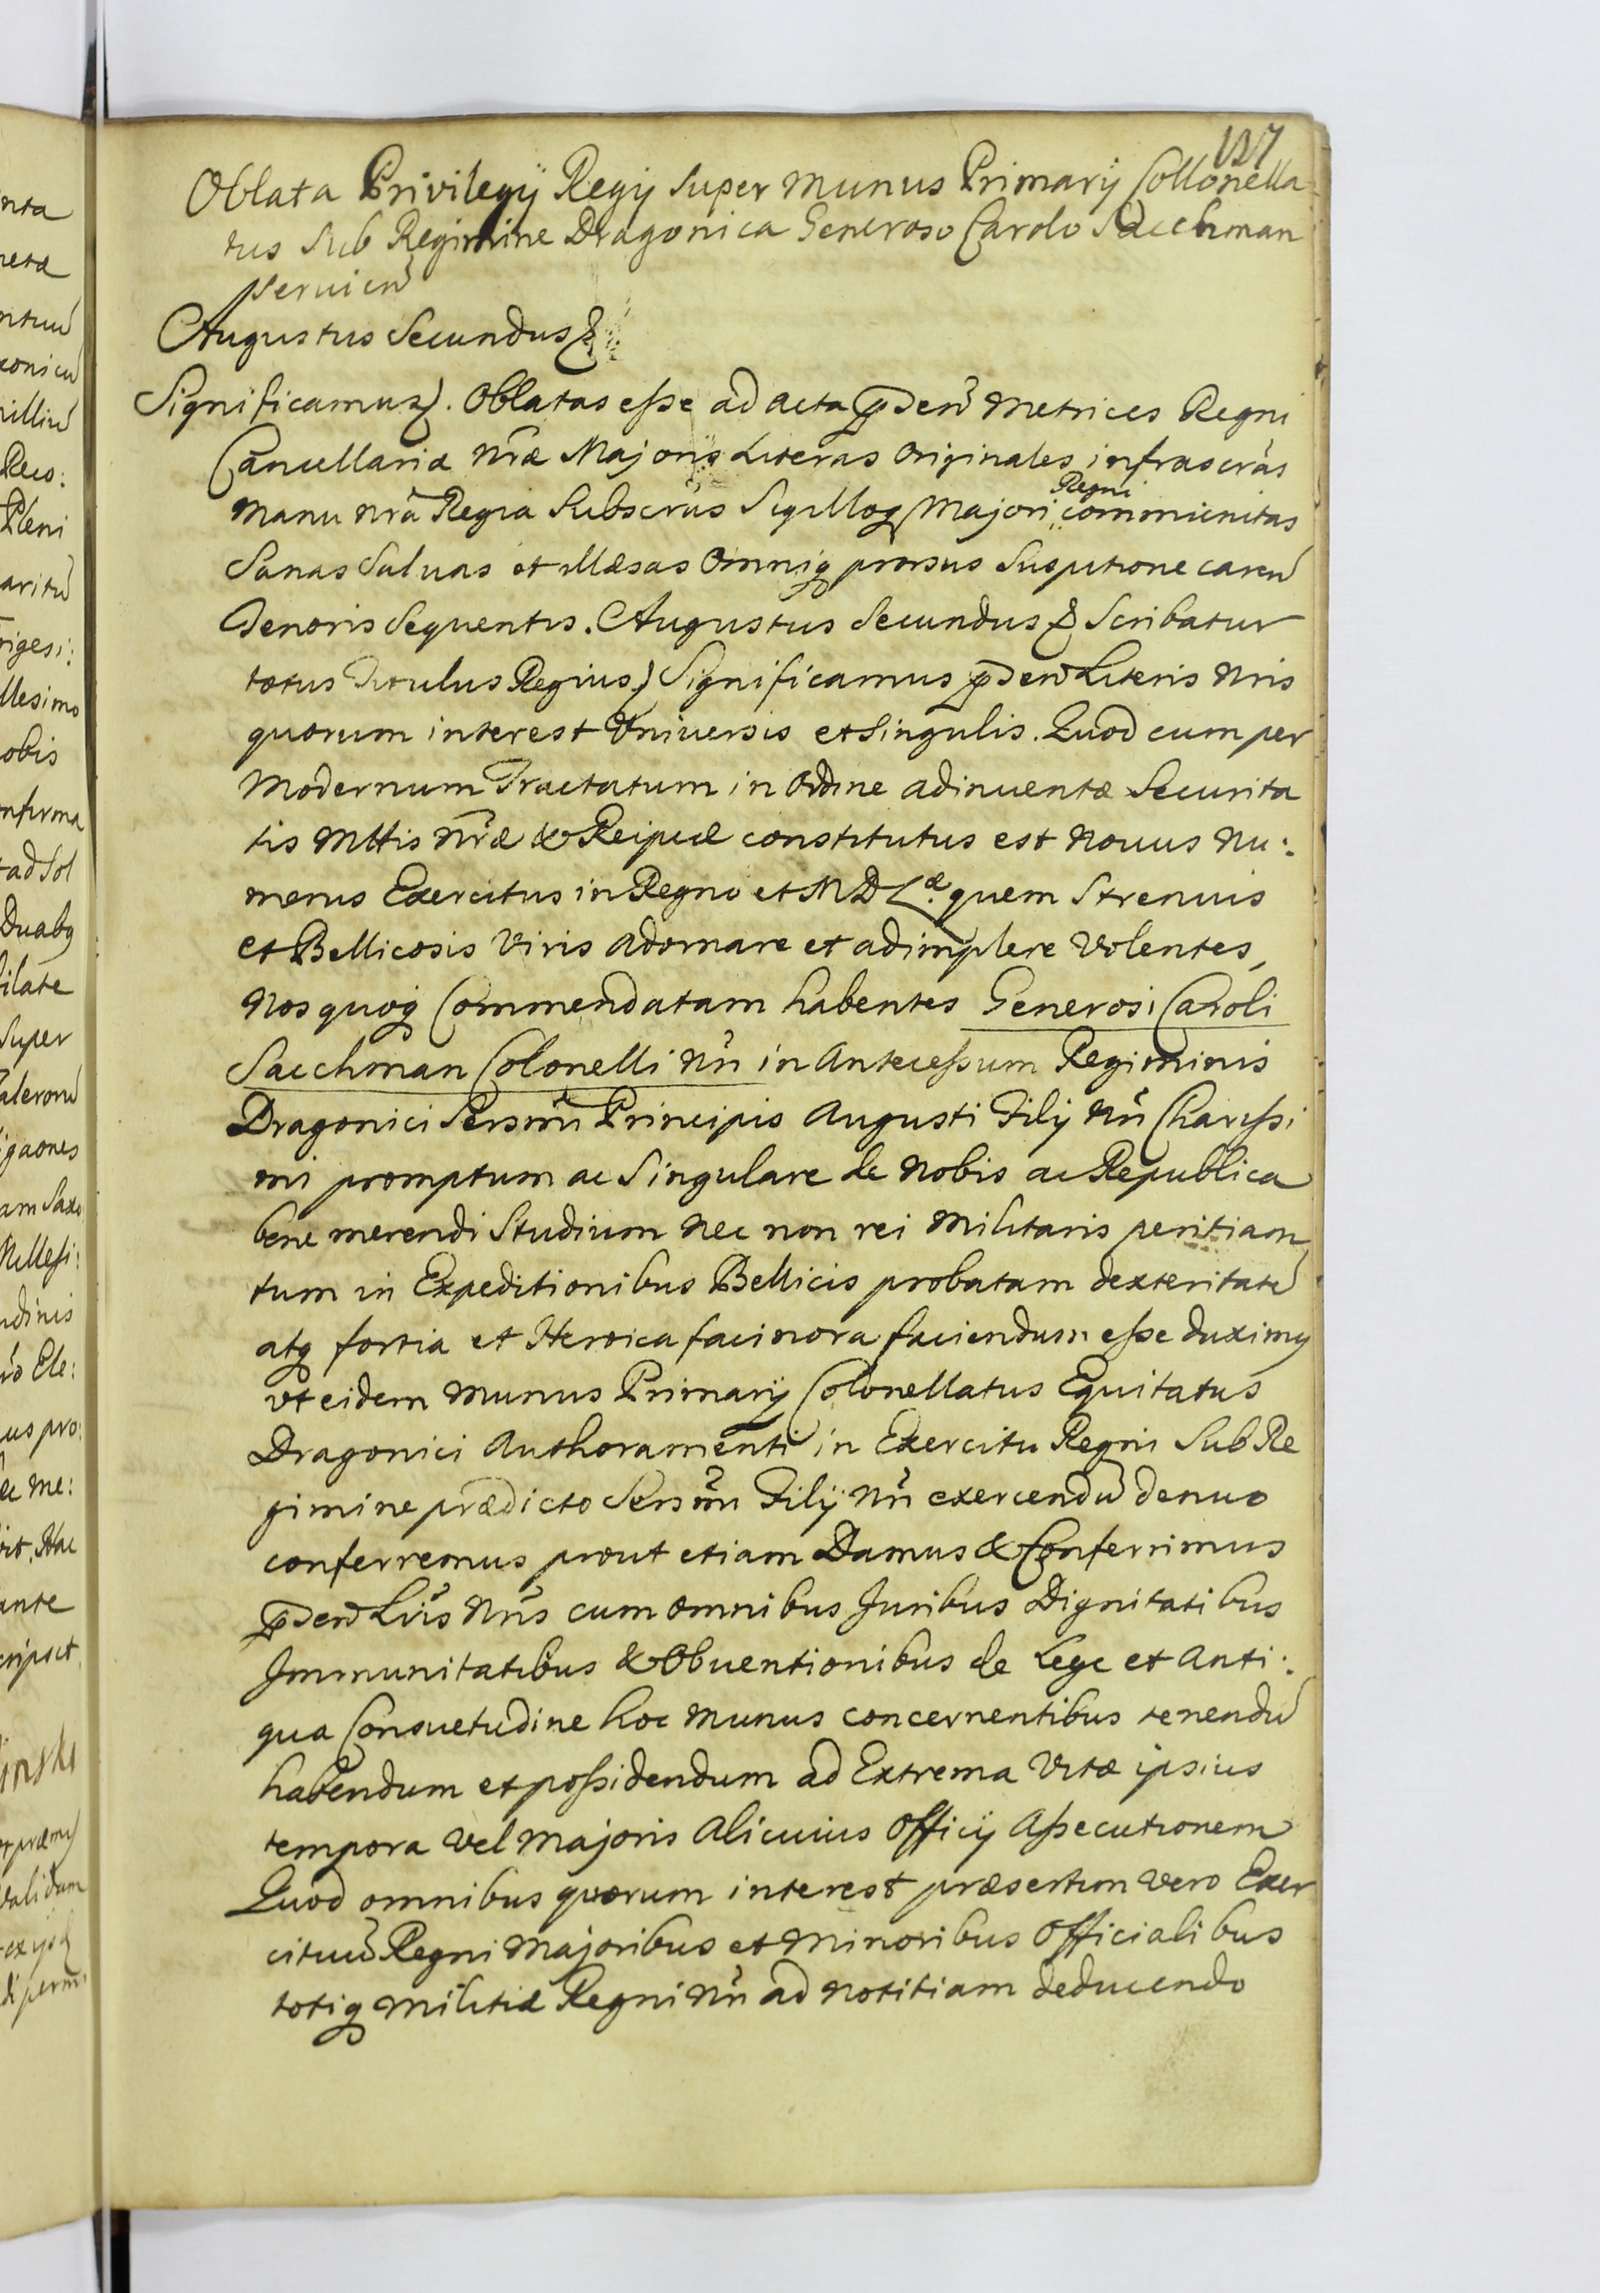 137
Oblata Privilegij Regij Super Munus Primarij Collonella
tus Sub Regimine Dragonica Generoso Carolo Sacchman
servien̄
Augustus Secundus &
Significamus &. Oblatas eſse ad acta p̄sen̄ Metrices Regni
Cancellariæ nr̄æ Majoris Literas Originales infrascr̄as
manu nr̄a Regia Subscr̄as Sigilloq Majori Regni communitas
Sanas Saluas et illæsas Omniq prorsus Suspitione caren̄
Tenoris Sequentis. Augustus Secundus & Scribatur
totus Titulus Regius) Significamus p̄sen̄ Literis Nris
quorum interest Vniuersis et Singulis. Quod cum per
Modernum Tractatum in Ordine adinuentæ Securita
tis Mttis Nr̄æ & Reipucæ constitutus est Nouus Nu:
merus Exercitus in Regno et M D L.æ quem Strenuis
et Bellicosis Viris adornare et adimplere Volentes,
Nos quoq Commendatam habentes Generosi Caroli
Sacchman Colonelli Nr̄i in Anteceſsum Regiminis
Dragonici Serssm̄i Principis Augusti Filij Nr̄i Chariſsi
mi promptum ac Singulare de Nobis ac Republica
bene merendi Studium Nec non rei Militaris peritiam
tum in Expeditionibus Bellicis probatam dexteritatē
atq fortia et Heroica facinora faciendum eſse duximq
vt eidem Munus Primarij Colonellatus Equitatus
Dragonici Authoramenti in Exercitu Regni Sub Re
gimine prædicto Serssm̄i Filij Nr̄i exercendū denuo
conferremus prout etiam Damus & Conferrimus
p̄sen̄ Lr̄is Nr̄is cum omnibus Juribus Dignitatibus
Immunitatibus & Obuentionibus de Lege et Anti:
qua Consuetudine hoc Munus concernentibus tenendū
habendum et poſsidendum ad Extrema Vitæ ipsius
tempora Vel Majoris Alicuius Officij Aſsecutionem
Quod omnibus quorum interest præsertim Vero Exer
cituū Regni Majoribus et Minoribus Officialibus
totiq Militiæ Regni Nr̄i ad Notitiam deducendo